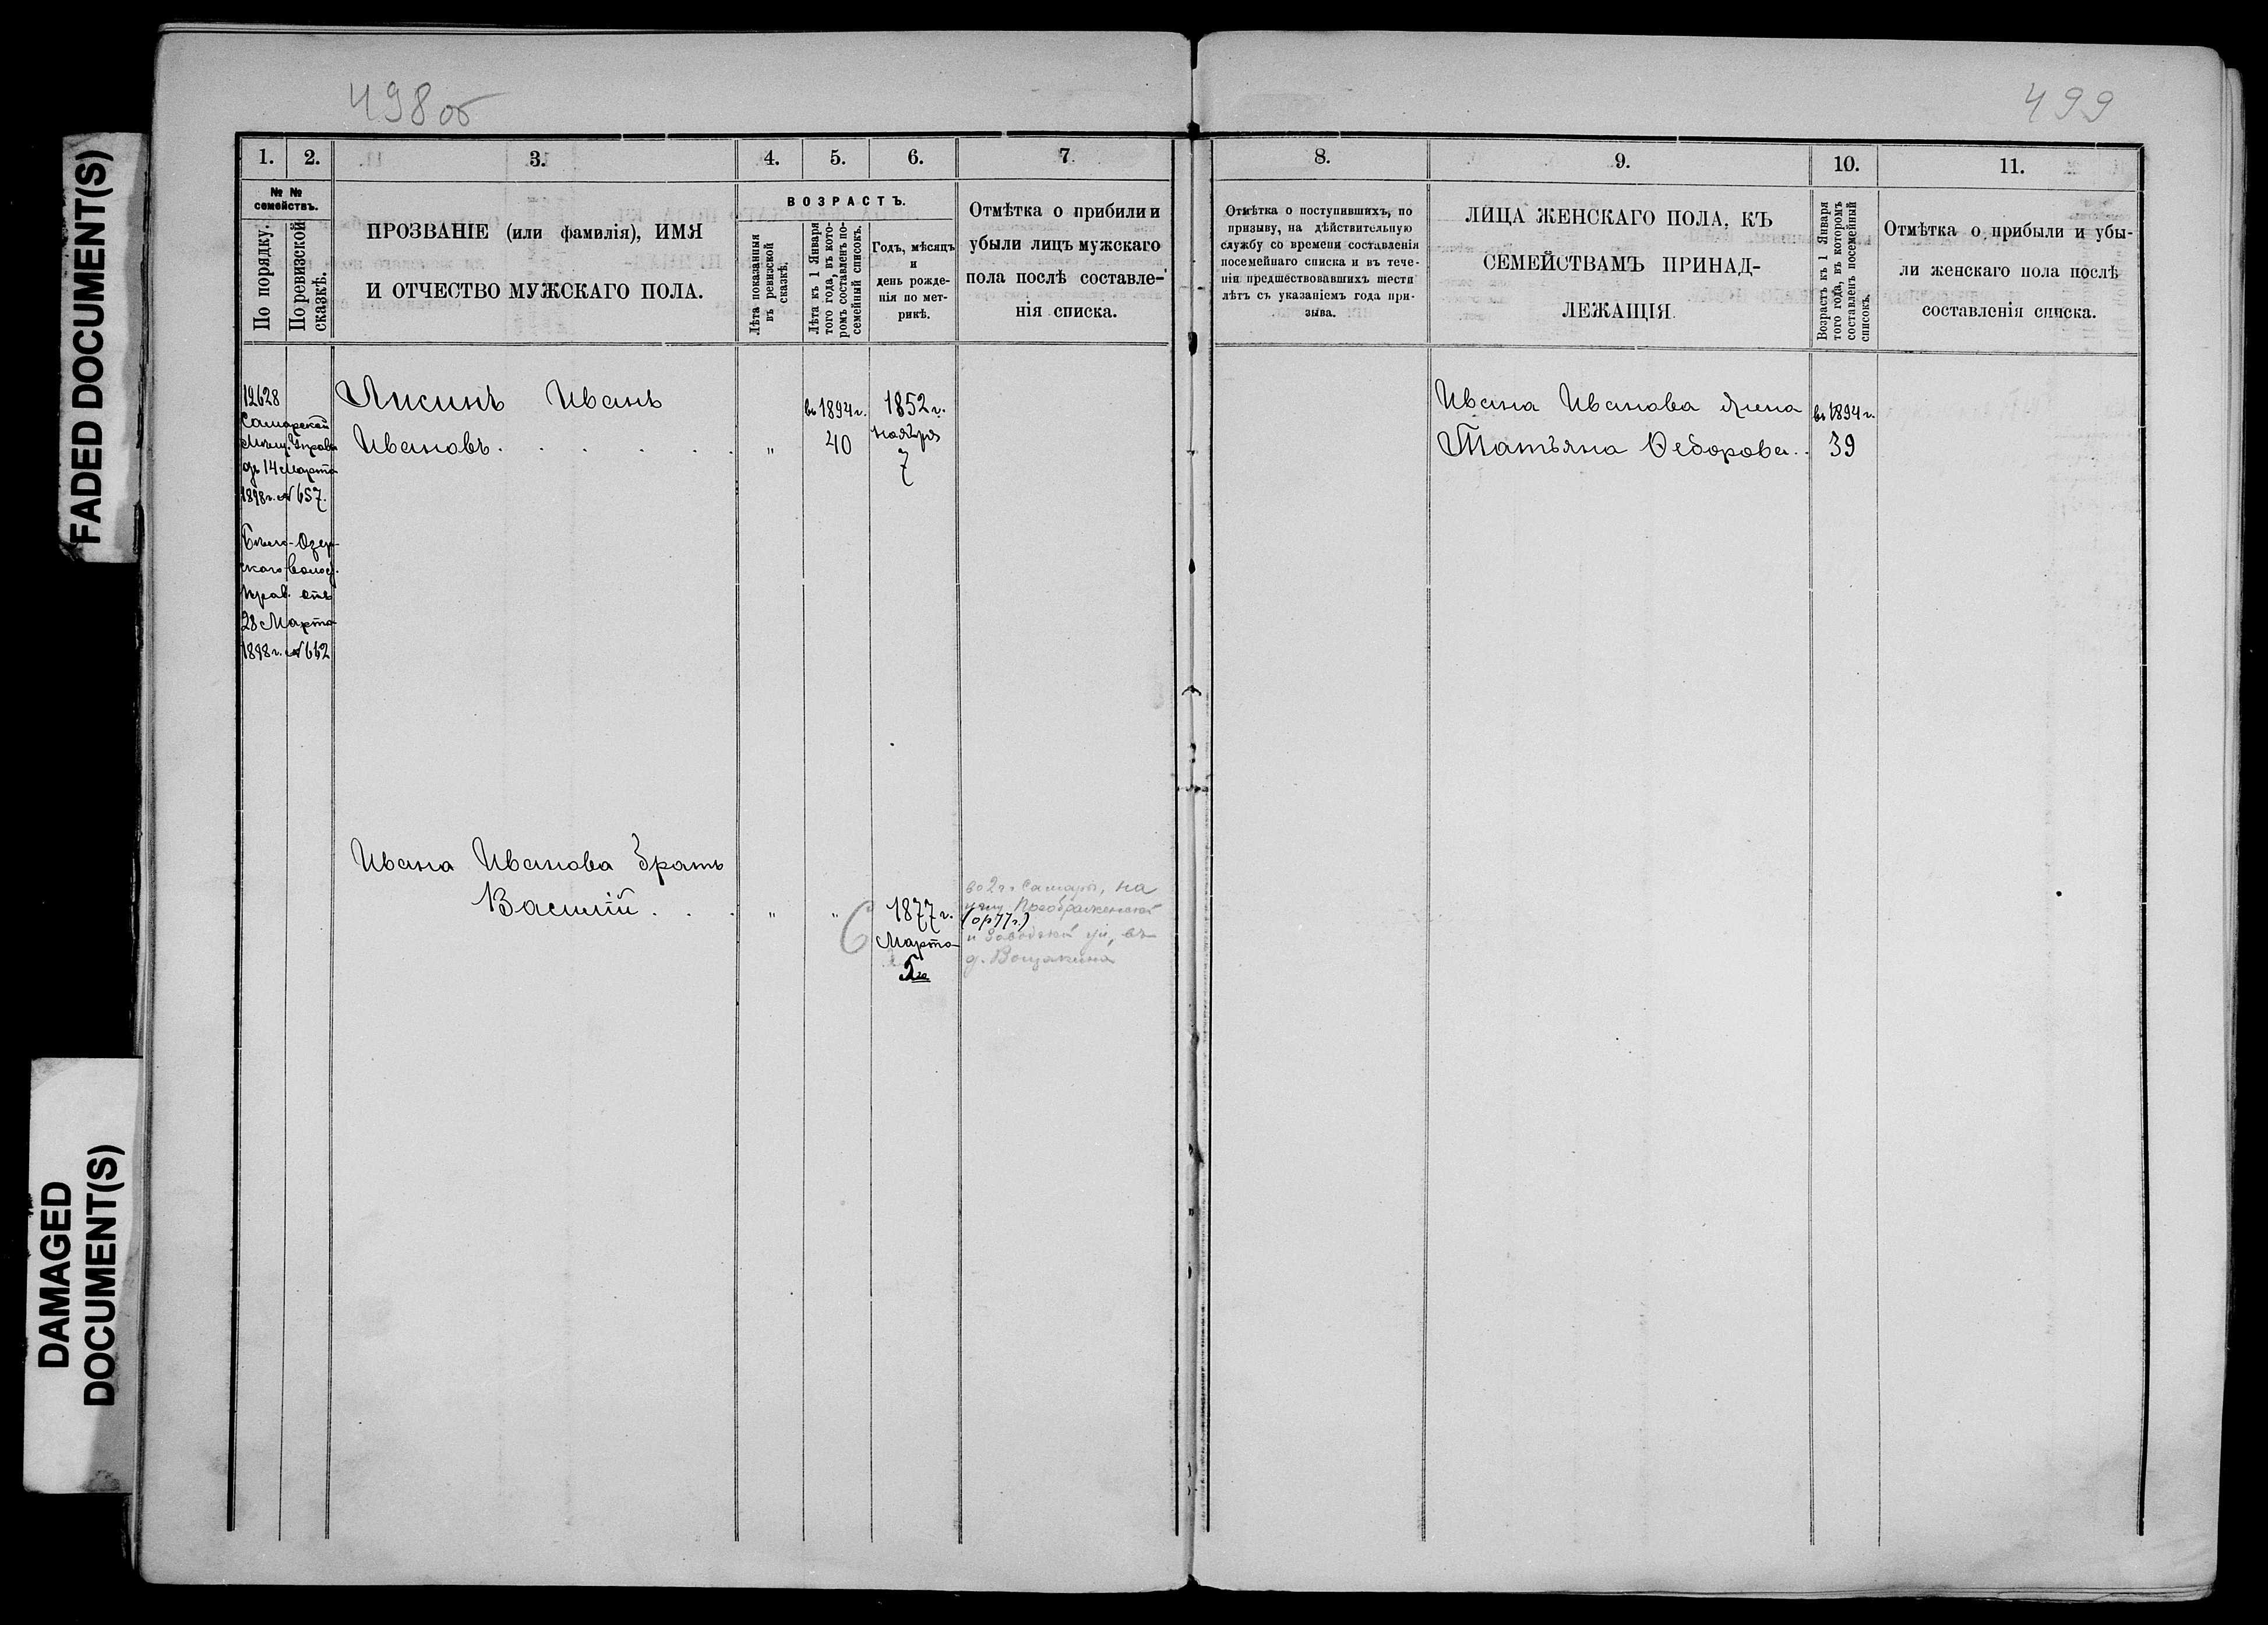 FADED DOCUMENT(S)
DAMAGED
DOCUMENT(S)
498 об
1. 2. 3. 4. 5. 6. 7
№ №
семействъ.
По порядку.
По ревизской
сказкѣ.
ПРОЗВАНІЕ (или фамилія), ИМЯ
И ОТЧЕСТВО МУЖСКАГО ПОЛА.
ВОЗРАСТЪ.
Лѣта показанныя
въ ревизской
сказкѣ.
Лѣта къ 1 Января
того года, въ кото-
ромъ составленъ по-
семейный списокъ.
Годъ, мѣсяцъ
и
день рожде-
нія по мет-
рикѣ.
Отмѣтка о прибыли и
убыли лицъ мужскаго
пола послѣ составле-
нія списка.
12628
Самарской
Мѣщ. Управы
14 Марта
1898 г. № 657.
Бѣло-Озер-
скаго волос.
Прав. отъ
28 Марта
1898 г. № 662
Лисинъ Иванъ
Ивановъ. . . . . . " въ 1894 г. 40 1852 г.
ноября
7
Ивана Иванова братъ
Василій . . . " " 1877 г.
Марта
5го
6
во 2 ч. Самары, на
углу Преображенской
(ор 77 г.)
и Заводской ул., въ
д. Вощакина
499
8. 9. 10. 11.
Отмѣтка о поступившихъ, по
призыву, на дѣйствительную
службу со времени составленія
посемейнаго списка и въ тече-
ніи предшествовавшихъ шести
лѣтъ съ указаніемъ года при-
зыва.
ЛИЦА ЖЕНСКАГО ПОЛА, КЪ
СЕМЕЙСТВАМЪ ПРИНАД-
ЛЕЖАЩІЯ.
Возрастъ къ 1 Января
того года, въ которомъ
составленъ посемейный
списокъ.
Отмѣтка о прибыли и убы-
ли женскаго пола послѣ
составленія списка.
Ивана Иванова жена въ 1894 г.
Татьяна Федорова . . 39